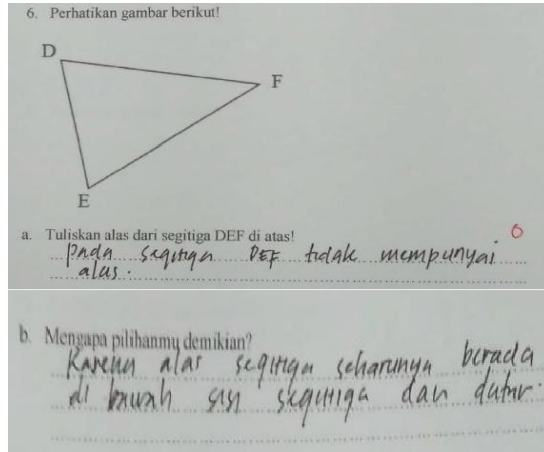 6. Perhatikan gambar berikut!
D
F
E
a. Tuliskan alas dari segitiga DEF di atas!
0
Pada segitiga DEF tidak mempunyai
alas.
b. Mengapa pilihanmu demikian?
Karena alas segitiga seharunya berada
di bawah sisi segitiga dan datar.